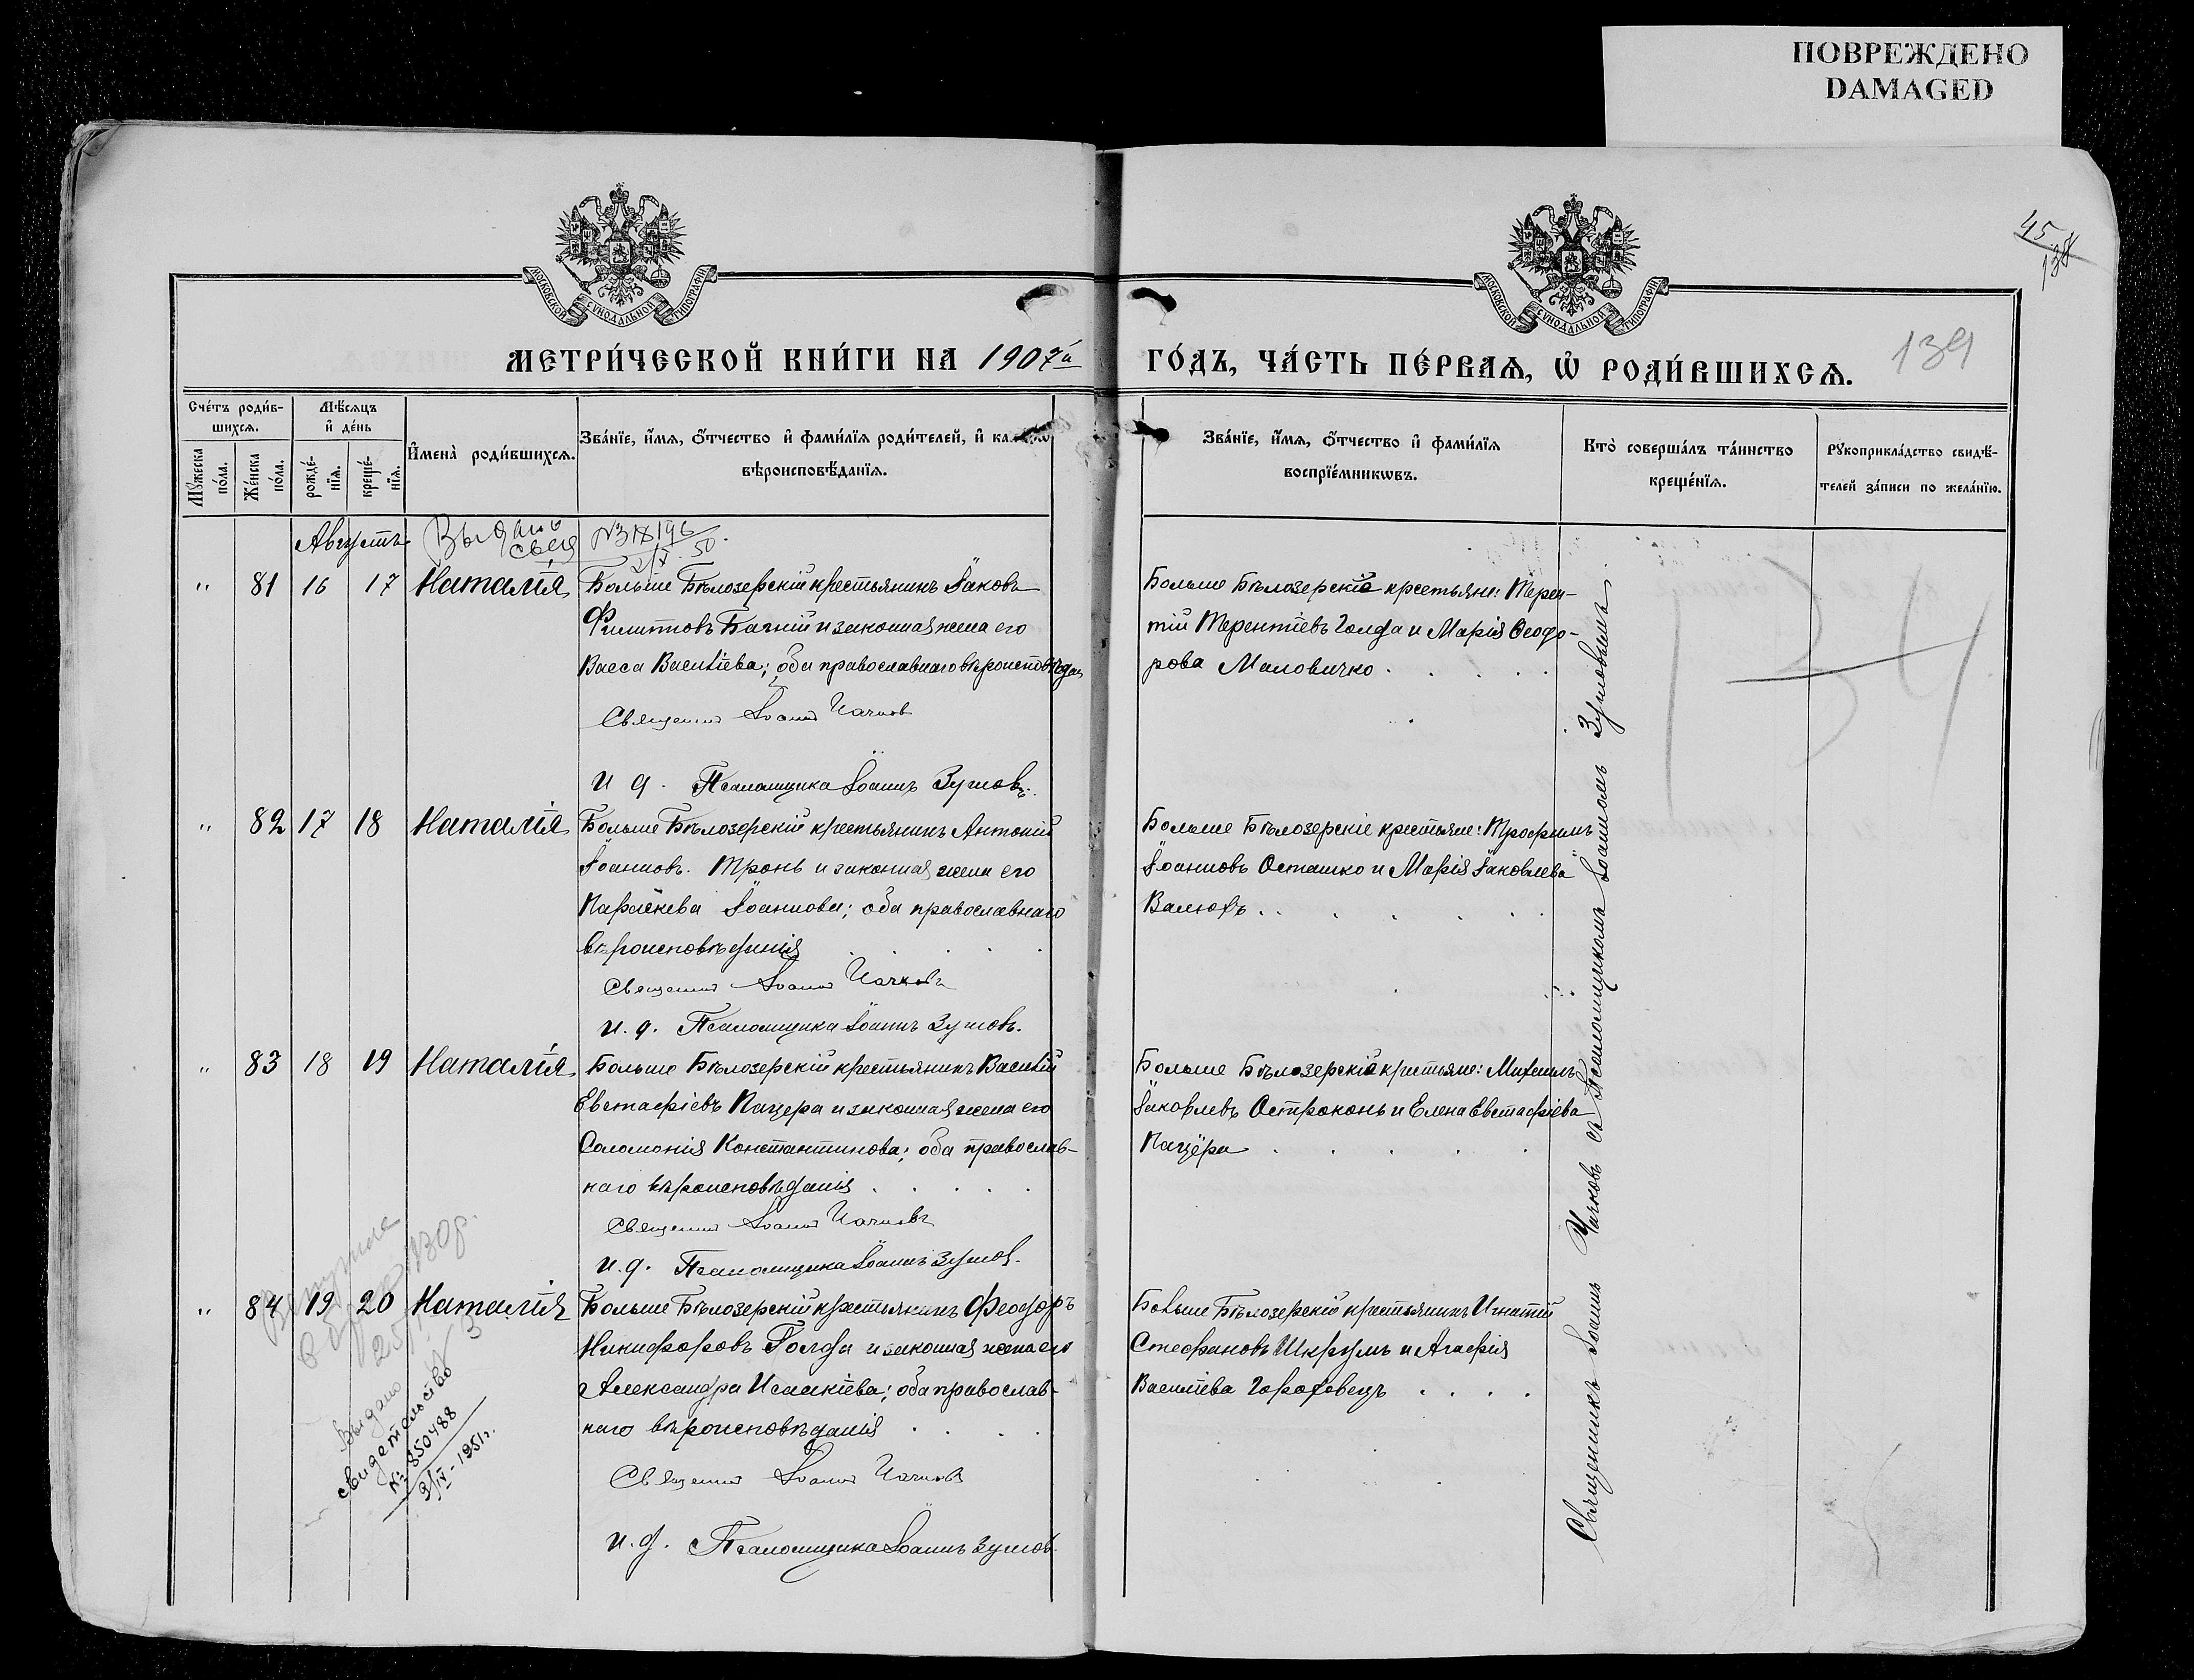 ПОВРЕЖДЕНО
DAMAGED
МОСКОВСКОЙ СѴНОДАЛЬНОЙ ТИПОГРАФІИ
МОСКОВСКОЙ СѴНОДАЛЬНОЙ ТИПОГРАФІИ
45
138
139
МЕТРИ́ЧЕСКОЙ КНИ́ГИ НА 1907й
ГО́ДЪ, ЧА́СТЬ ПЕ́РВАѦ, Ѽ РОДИ́ВШИХСѦ.
Сче́тъ роди́в-
шихсѧ.
Мѣ́сѧцъ
и҆ де́нь
Мꙋ́жеска
по́ла.
Же́нска
по́ла.
рожде́-
нїѧ.
креще́-
нїѧ.
И҆мена̀ роди́вшихсѧ.
Зва́нїе, и҆́мѧ, ѻ҆́тчество и҆ фами́лїѧ роди́телей, и҆
вѣроисповѣ́данїѧ.
Зва́нїе, и҆́мѧ, ѻ҆́тчество и҆ фами́лїѧ
воспрїе́мникѡвъ.
Кто̀ соверша́лъ та́инство
креще́нїѧ.
Рꙋкоприкла́дство свидѣ́-
телей за́писи по жела́нїю.
Августъ
" 81 16 17 Наталія
Больше Бѣлозерскій крестьянинъ Іаковъ
Филипповъ Бачній и законная жена его
Васса Василіева; оба православнаго вѣроисповѣдан
Священник Іоанн Чачков
и д. Псаломщика Іоаннъ Зуммовъ.
Больше Бѣлозерскіе крестьяне: Терен-
тій Терентіевъ Голда и Марія Ѳеодо-
рова Маловичко
" 82 17 18 Наталія
Больше Бѣлозерскій крестьянинъ Антоній
Іоанновъ Тронь и законная жена его
Параскева Іоаннова; оба православнаго
вѣроисповѣданія
Священник Іоанн Чачковъ
и. д. Псаломщика Іоаннъ
Больше Бѣлозерскіе крестьяне: Трофимъ
Іоанновъ Осташко и Марія Іаковлева
Валюхъ
" 83 18 19 Наталія
Больше Бѣлозерскій крестьянинъ Василій
Евстафіевъ Пацера и законная жена его
Соломонія Константинова; оба православ-
наго вѣроисповѣданія
Священник Іоанн Чачковъ
и. д. Псаломщика Іоаннъ
Больше Бѣлозерскіе крестьяне: Михаилъ
Іаковлевъ Остроконь и Елена Евстафіева
Пацера
" 84 19 20 Наталія
Больше Бѣлозерскій крестьянинъ Феодоръ
Никифоровъ Голда и законная жена его
Александра Исаакіева; оба православ-
наго вѣроисповѣданія
Священник Іоанн Чачков
и. д. Псаломщика Іоаннъ
Больше Бѣлозерскій крестьянинъ Игнатій
Стефановъ Шкрумъ и Агафія
Василіева Гороховецъ
Священникъ Іоаннъ Чачковъ съ Псаломщикомъ Іоанномъ
Выдано
свидетельство
№ 850488
3/IV - 1951г.